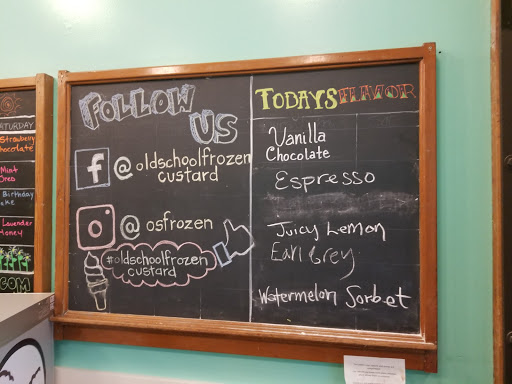 SATURDAY
Strawberry
Chocolate
Mint
Oreo
Birthday
Cake
Lavender
Honey
.COM
FOLLOW
US
f @oldschoolfrozen
custard
@ osfrozen
#oldschoolfrozen
custard
TODAYS FLAVOR
Vanilla
Chocolate
Espresso
Juicy Lemon
Earl Grey
Watermelon Sorbet